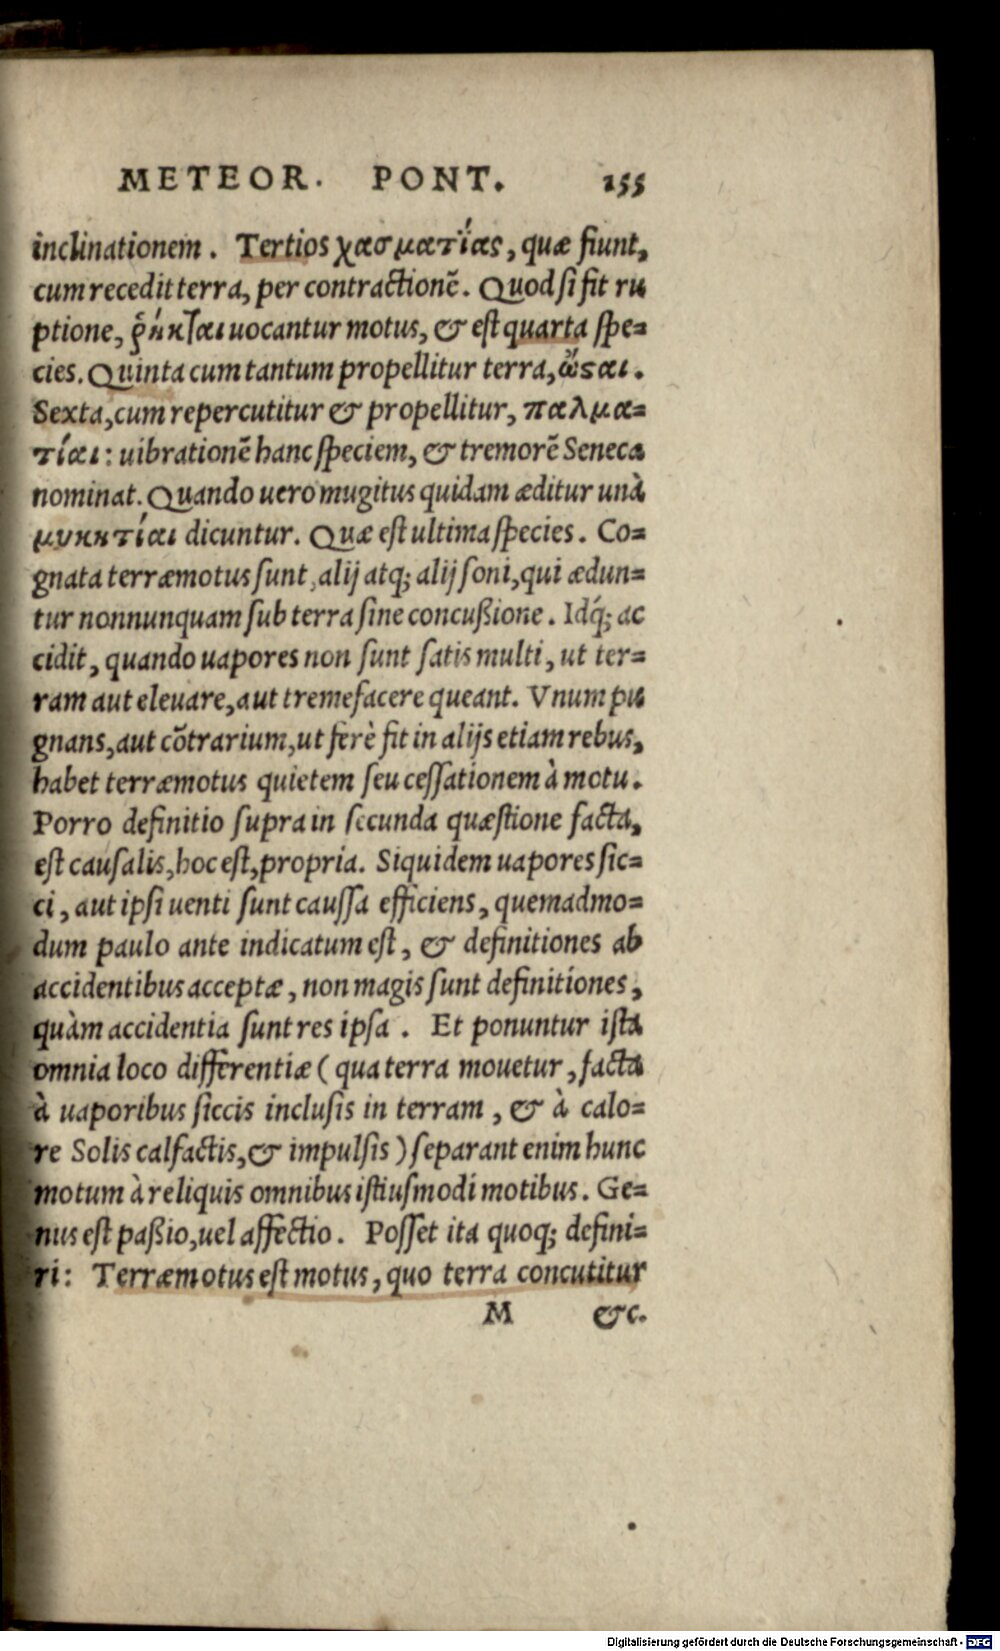 METEOR. PONT. 155
inclinationem. Tertios χασματΐας, quæ fiunt,
cum recedit terra, per contractionē. Quod si fit ru
ptione, ῥῆκται uocantur motus, & est quarta spe=
cies. Quinta cum tantum propellitur terra, ὦσαι.
Sexta, cum repercutitur & propellitur, παλμα=
τίαι: uibrationē hanc speciem, & tremorē Seneca
nominat. Quando uero mugitus quidam æditur unà
μυκητίαι dicuntur. Quæ est ultima species. Co=
gnata terræmotus sunt, alij atq; alij soni, qui ædun=
tur nonnunquam sub terra sine concußione. Idq́; ac
cidit, quando uapores non sunt satis multi, ut ter=
ram aut eleuare, aut tremefacere queant. Vnum pu
gnans, aut cōtrarium, ut ferè fit in alijs etiam rebus,
habet terræmotus quietem seu cessationem à motu.
Porro definitio supra in secunda quæstione facta,
est causalis, hoc est, propria. Siquidem uapores sic=
ci, aut ipsi uenti sunt caussa efficiens, quemadmo=
dum paulo ante indicatum est, & definitiones ab
accidentibus acceptæ, non magis sunt definitiones,
quàm accidentia sunt res ipsa. Et ponuntur ista
omnia loco differentiæ (qua terra mouetur, facta
à uaporibus siccis inclusis in terram, & à calo=
re Solis calfactis, & impulsis) separant enim hunc
motum à reliquis omnibus istiusmodi motibus. Ge=
nus est paßio, uel affectio. Posset ita quoq; defini=
ri: Terræmotus est motus, quo terra concutitur
M &c.
Digitalisierung gefördert durch die Deutsche Forschungsgemeinschaft - DFG